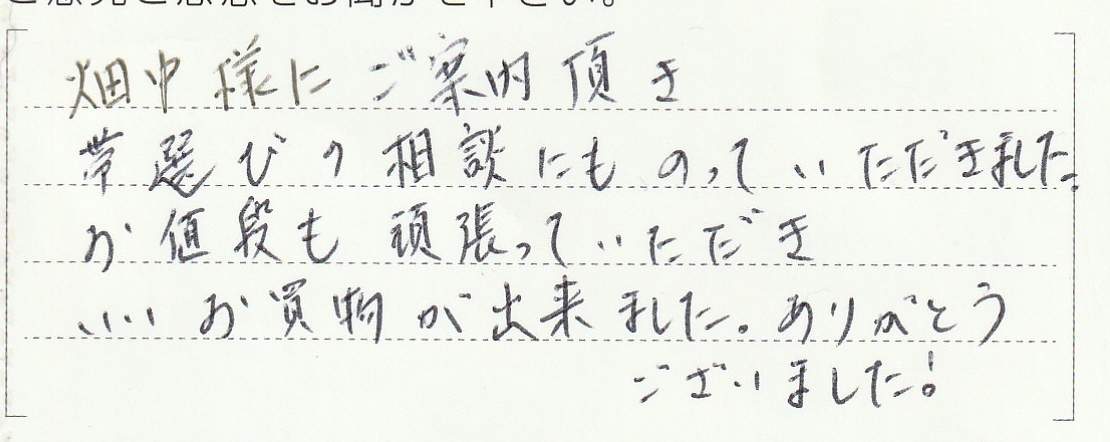 ご意見ご感想をお聞かせ下さい。
畑中様にご案内頂き
帯選びの相談にものっていただきました。
お値段も頑張っていただき
いいお買物が出来ました。ありがとう
ございました!